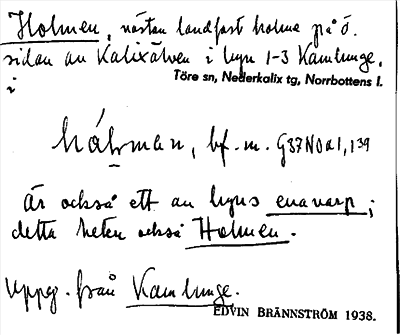 Holmen, nästan landfast holme på ö.
sidan av Kalixälven i byn 1-3 Kamlunge,
Töre sn, Nederkalix tg, Norrbottens l.
i
hålman, bf. m.
Är också ett av byns enavarp;
detta heter också Holmen.
Uppg. från Kamlunge.
EDVIN BRÄNNSTRÖM 1938.